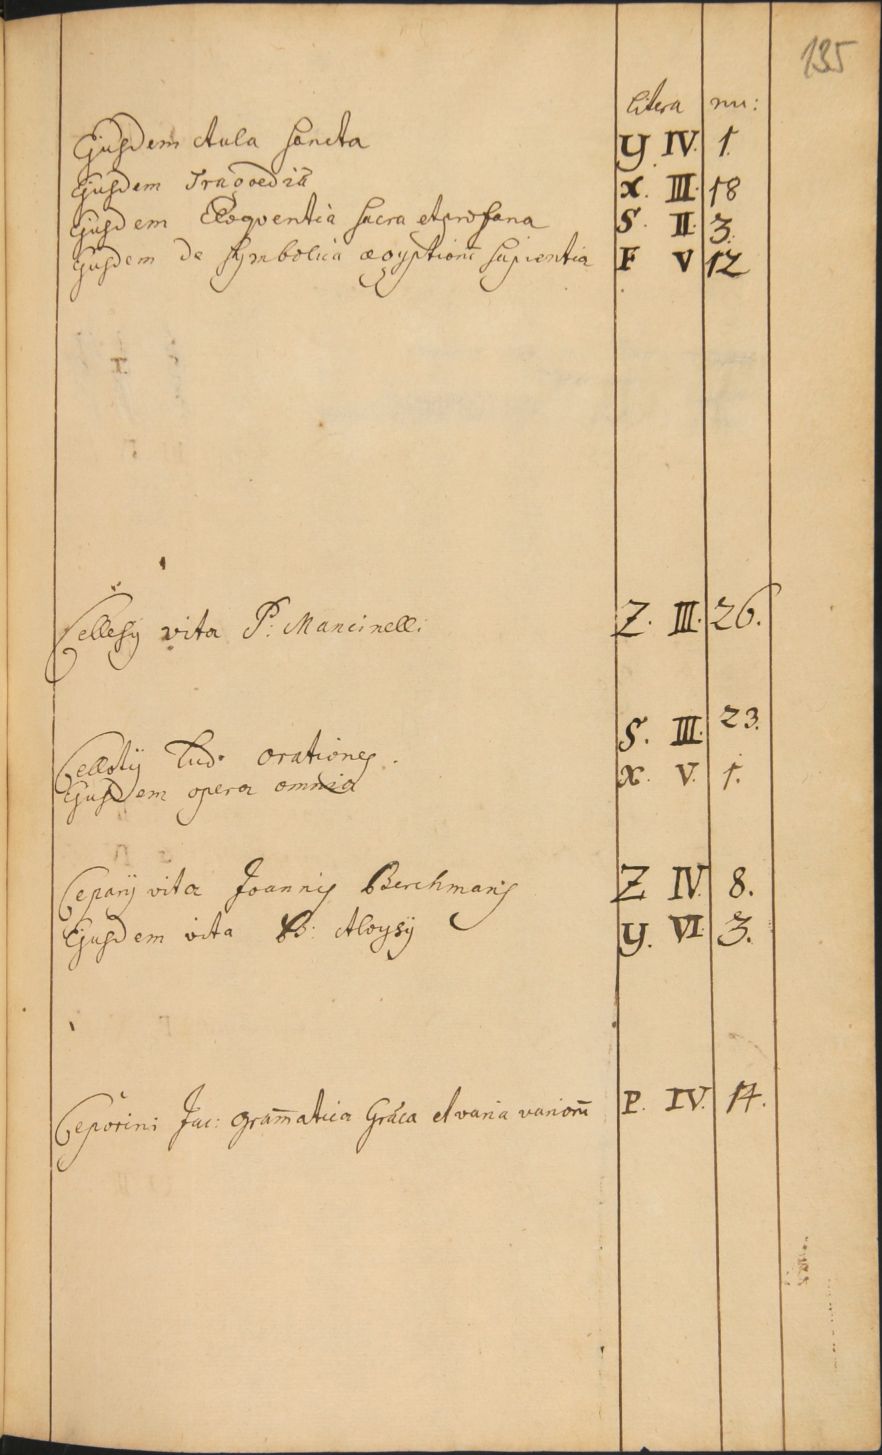 135
litera nu:
Ejusdem Aula sancta Y IV. 1.
Ejusdem Tragoediã X. III. 18
Ejusdem Eloquentia sacra et profana S. II. 3.
Ejusdem de symbolica ægyptiorũ sapientia F V 12
Cellesij vita P: Mancinelli Z. III. 26.
Cellotij Lud. orationes. S. III. 23.
Ejusdem opera omnia X. V. 1.
Ceparij vita Joannis Berchmanis Z IV. 8.
Ejusdem vita B: Aloysij Y. VI. 3.
Ceporini Jac: gram̃atica Græca et varia variorũ P. IV. 14.